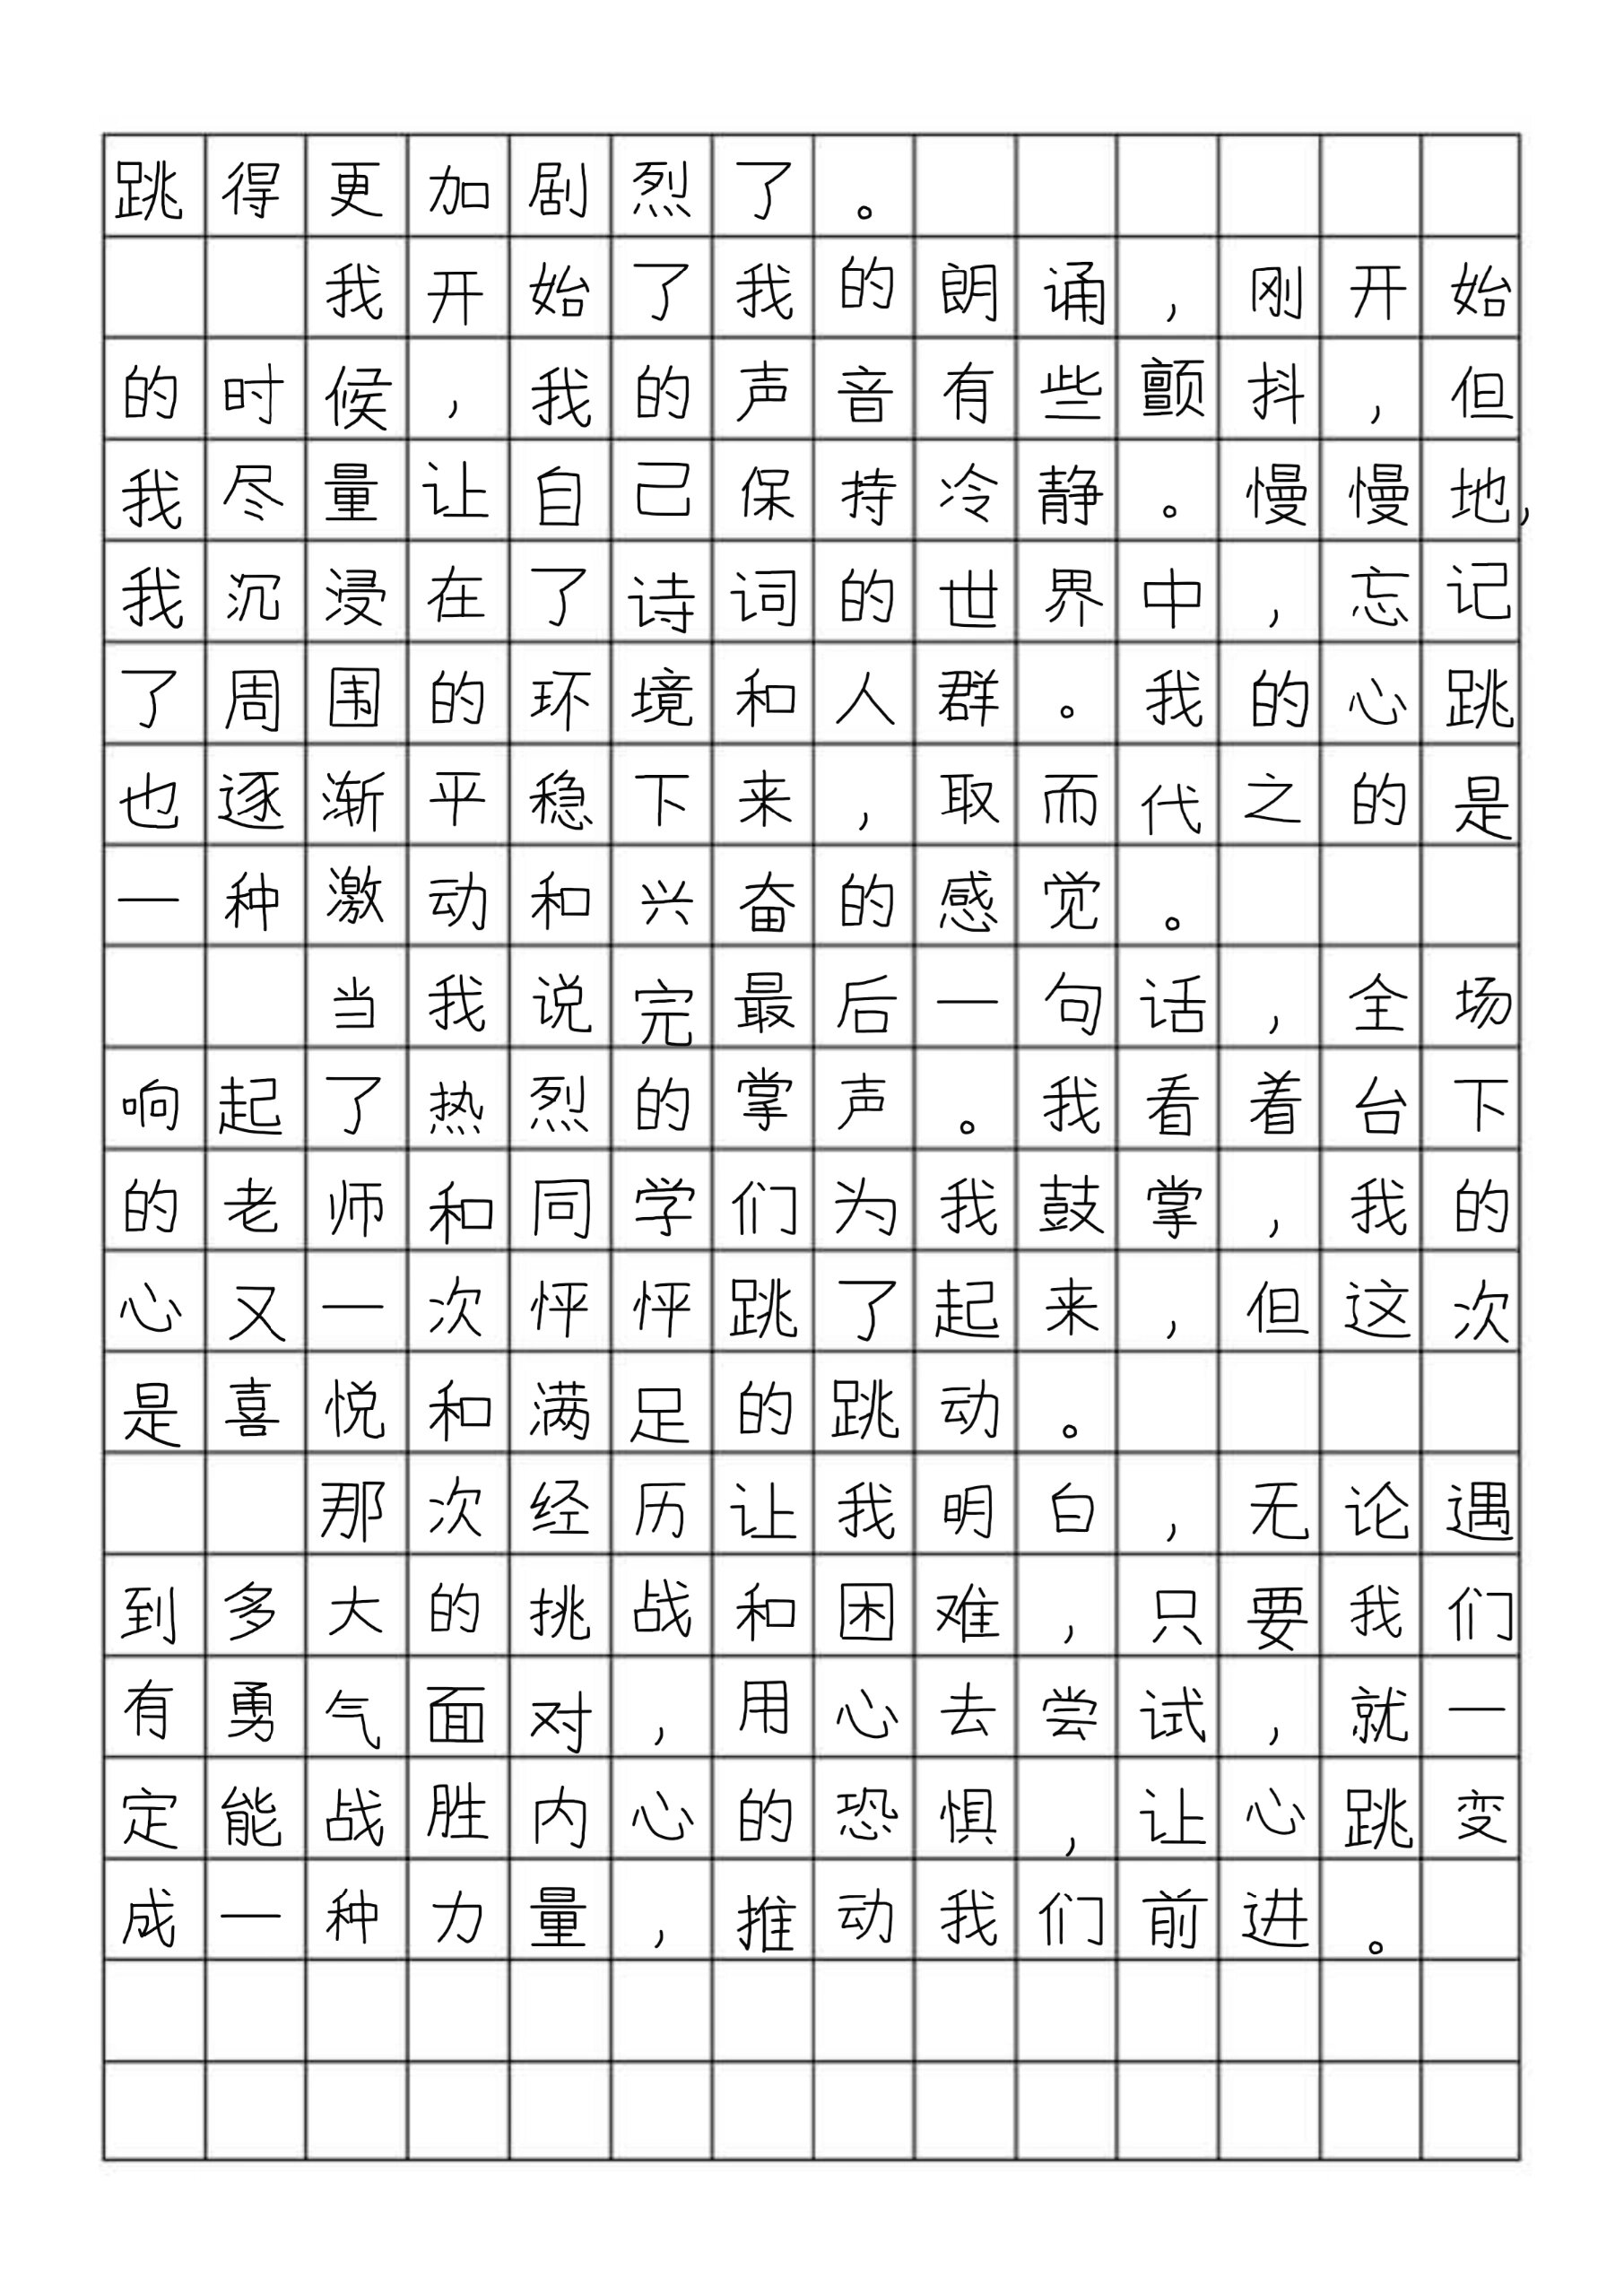 跳得更加剧烈了。
我开始了我的朗诵，刚开始
的时候，我的声音有些颤抖，但
我尽量让自己保持冷静。慢慢地，
我沉浸在了诗词的世界中，忘记
了周围的环境和人群。我的心跳
也逐渐平稳下来，取而代之的是
一种激动和兴奋的感觉。
当我说完最后一句话，全场
响起了热烈的掌声。我看着台下
的老师和同学们为我鼓掌，我的
心又一次怦怦跳了起来，但这次
是喜悦和满足的跳动。
那次经历让我明白，无论遇
到多大的挑战和困难，只要我们
有勇气面对，用心去尝试，就一
定能战胜内心的恐惧，让心跳变
成一种力量，推动我们前进。